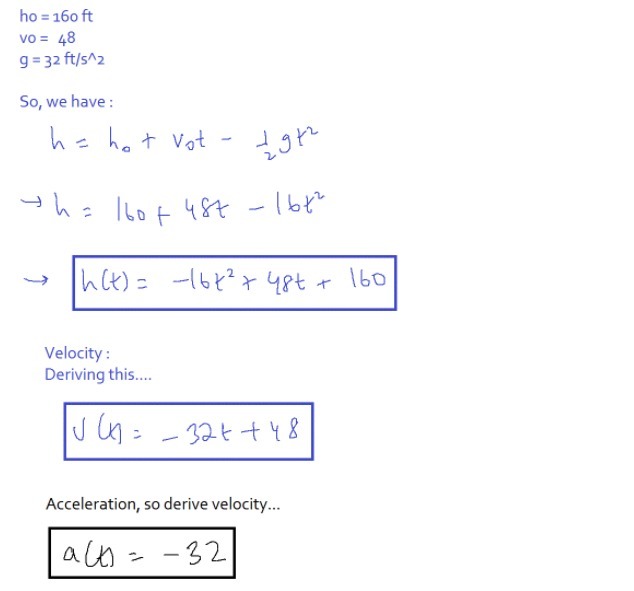 ho = 160 ft
vo = 48
g = 32 ft/s^2
So, we have :
h = h₀ + v₀t - 1/2 gt²
→ h = 160 + 48t - 16t²
→ h(t) = -16t² + 48t + 160
Velocity :
Deriving this....
v(t) = -32t + 48
Acceleration, so derive velocity...
a(t) = -32